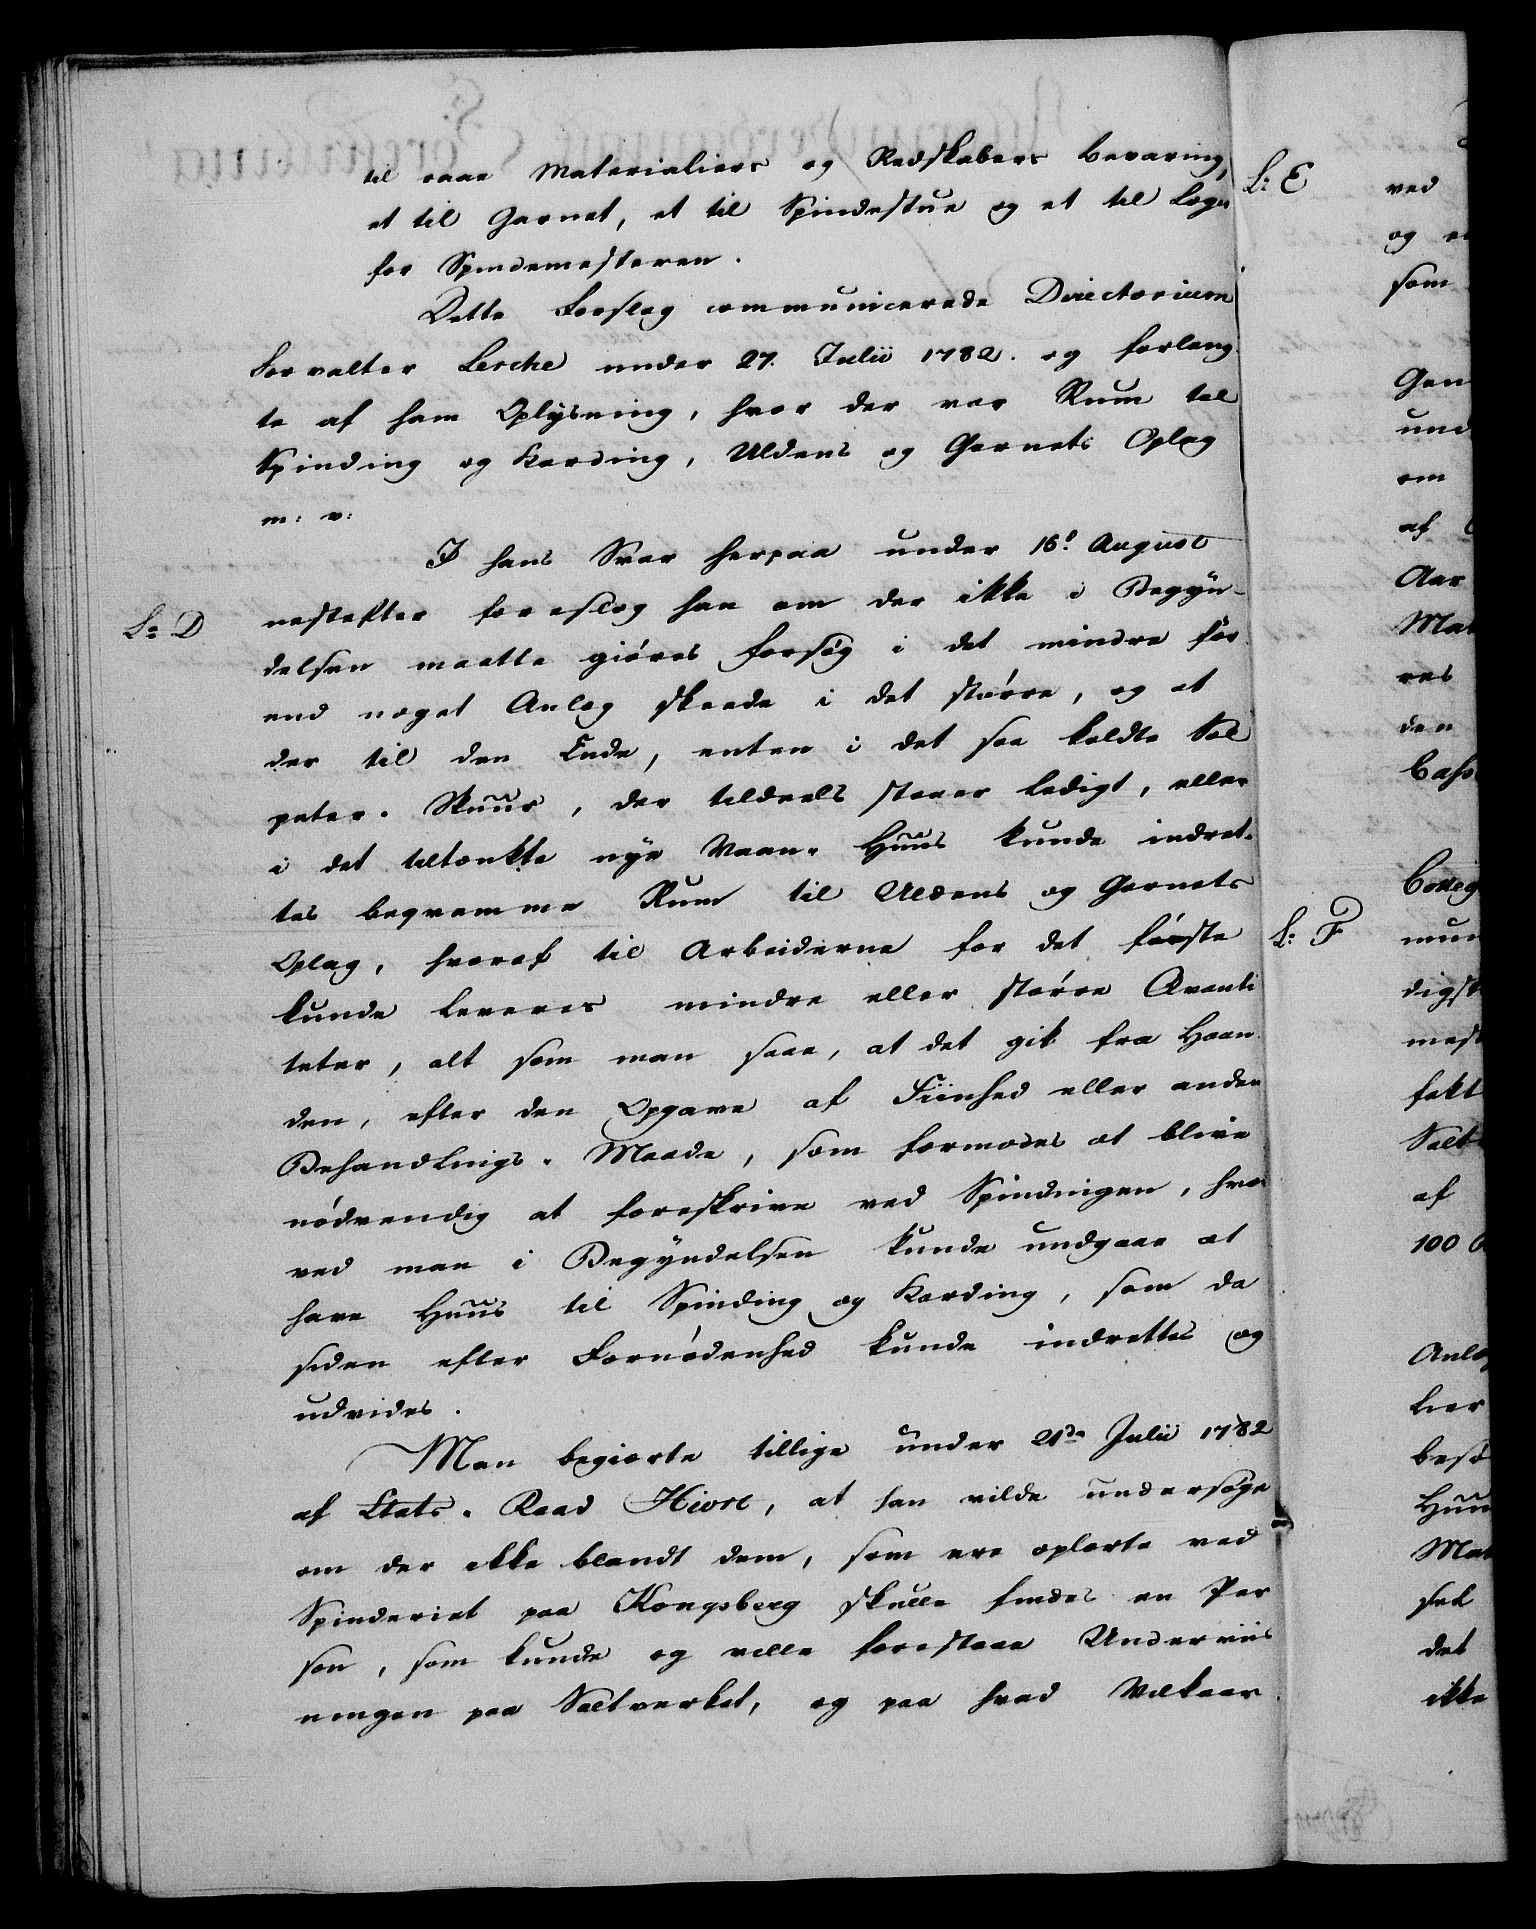 til raae Materialiers og Redskabers bevaring,
et til Garnet, et til Spindestue og et til Logis
for Spindemesteren.
Dette Forslag communicerede Directorium
Forvalter Lerche under 27. Julii 1782. og forlang-
te af ham Oplysning, hvor der var Rum til
Spinding og Karding, Uldens og Garnets Oplag
m: v:
I hans Svar herpaa under 16d August
L: D
nestefter foreslog han om der ikke i Begyn-
delsen maatte giøres Forsøg i det mindre før-
end noget Anlæg skeede i det større, og at
der til den Ende, enten i det saa kaldte Sal
peter-Skuur, der tildeels staaer ledigt, eller
i det tiltænkte nye Vaan-Huus kunde indret-
tes beqvemme Rum til Uldens og Garnets
Oplag, hvoraf til Arbeiderne for det første
kunde leveres mindre eller større Qvanti
teter, alt som man saae, at det gik fra Haan-
den, efter den Opgave af Fiinhed eller anden
Behandlings-Maade, som formodes at blive
nødvendig at foreskrive ved Spindingen, hvor
ved man i Begyndelsen kunde undgaae at
have Huus til Spinding og Karding, som da
siden efter Fornødenhed kunde indrettes og
udvides.
Man begierte tillige under 21de Julii 1782
af Etats-Raad Hiort, at han vilde undersøge
om der ikke blandt dem, som ere oplærte ved
Spinderiet paa Kongsberg skulle findes en Per
son, som kunde og ville forestaae Underviis
ningen paa Saltverket, og paa hvad Vilkaar.
L: E
ved
og
som
Gen
und
om
af
Aar
Mat
res
den
Casse
Colleg
L: F
mun
digst
mest
fakt
Salt
af
100
Anlæg
lier
besø
Huu
Mat
sel
det
ikke